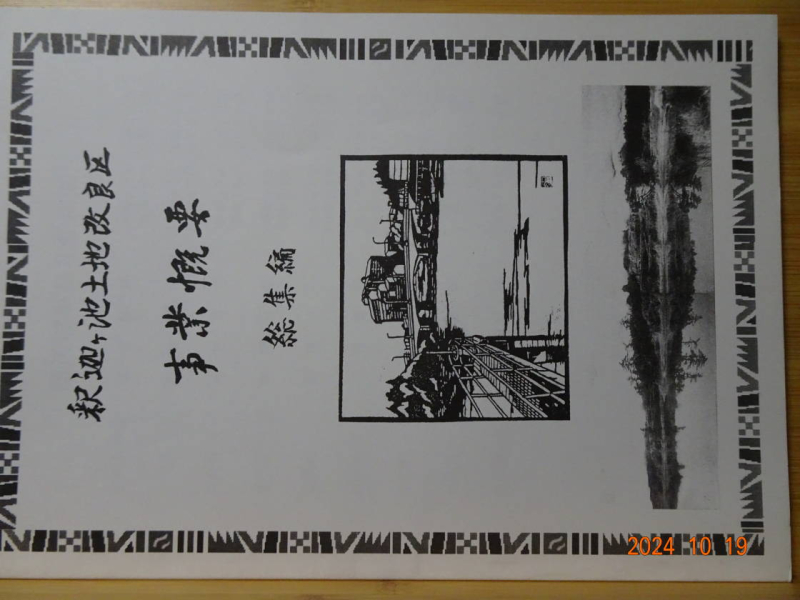 釈迦ヶ池土地改良区
事業概要
総集編
2024 10 19